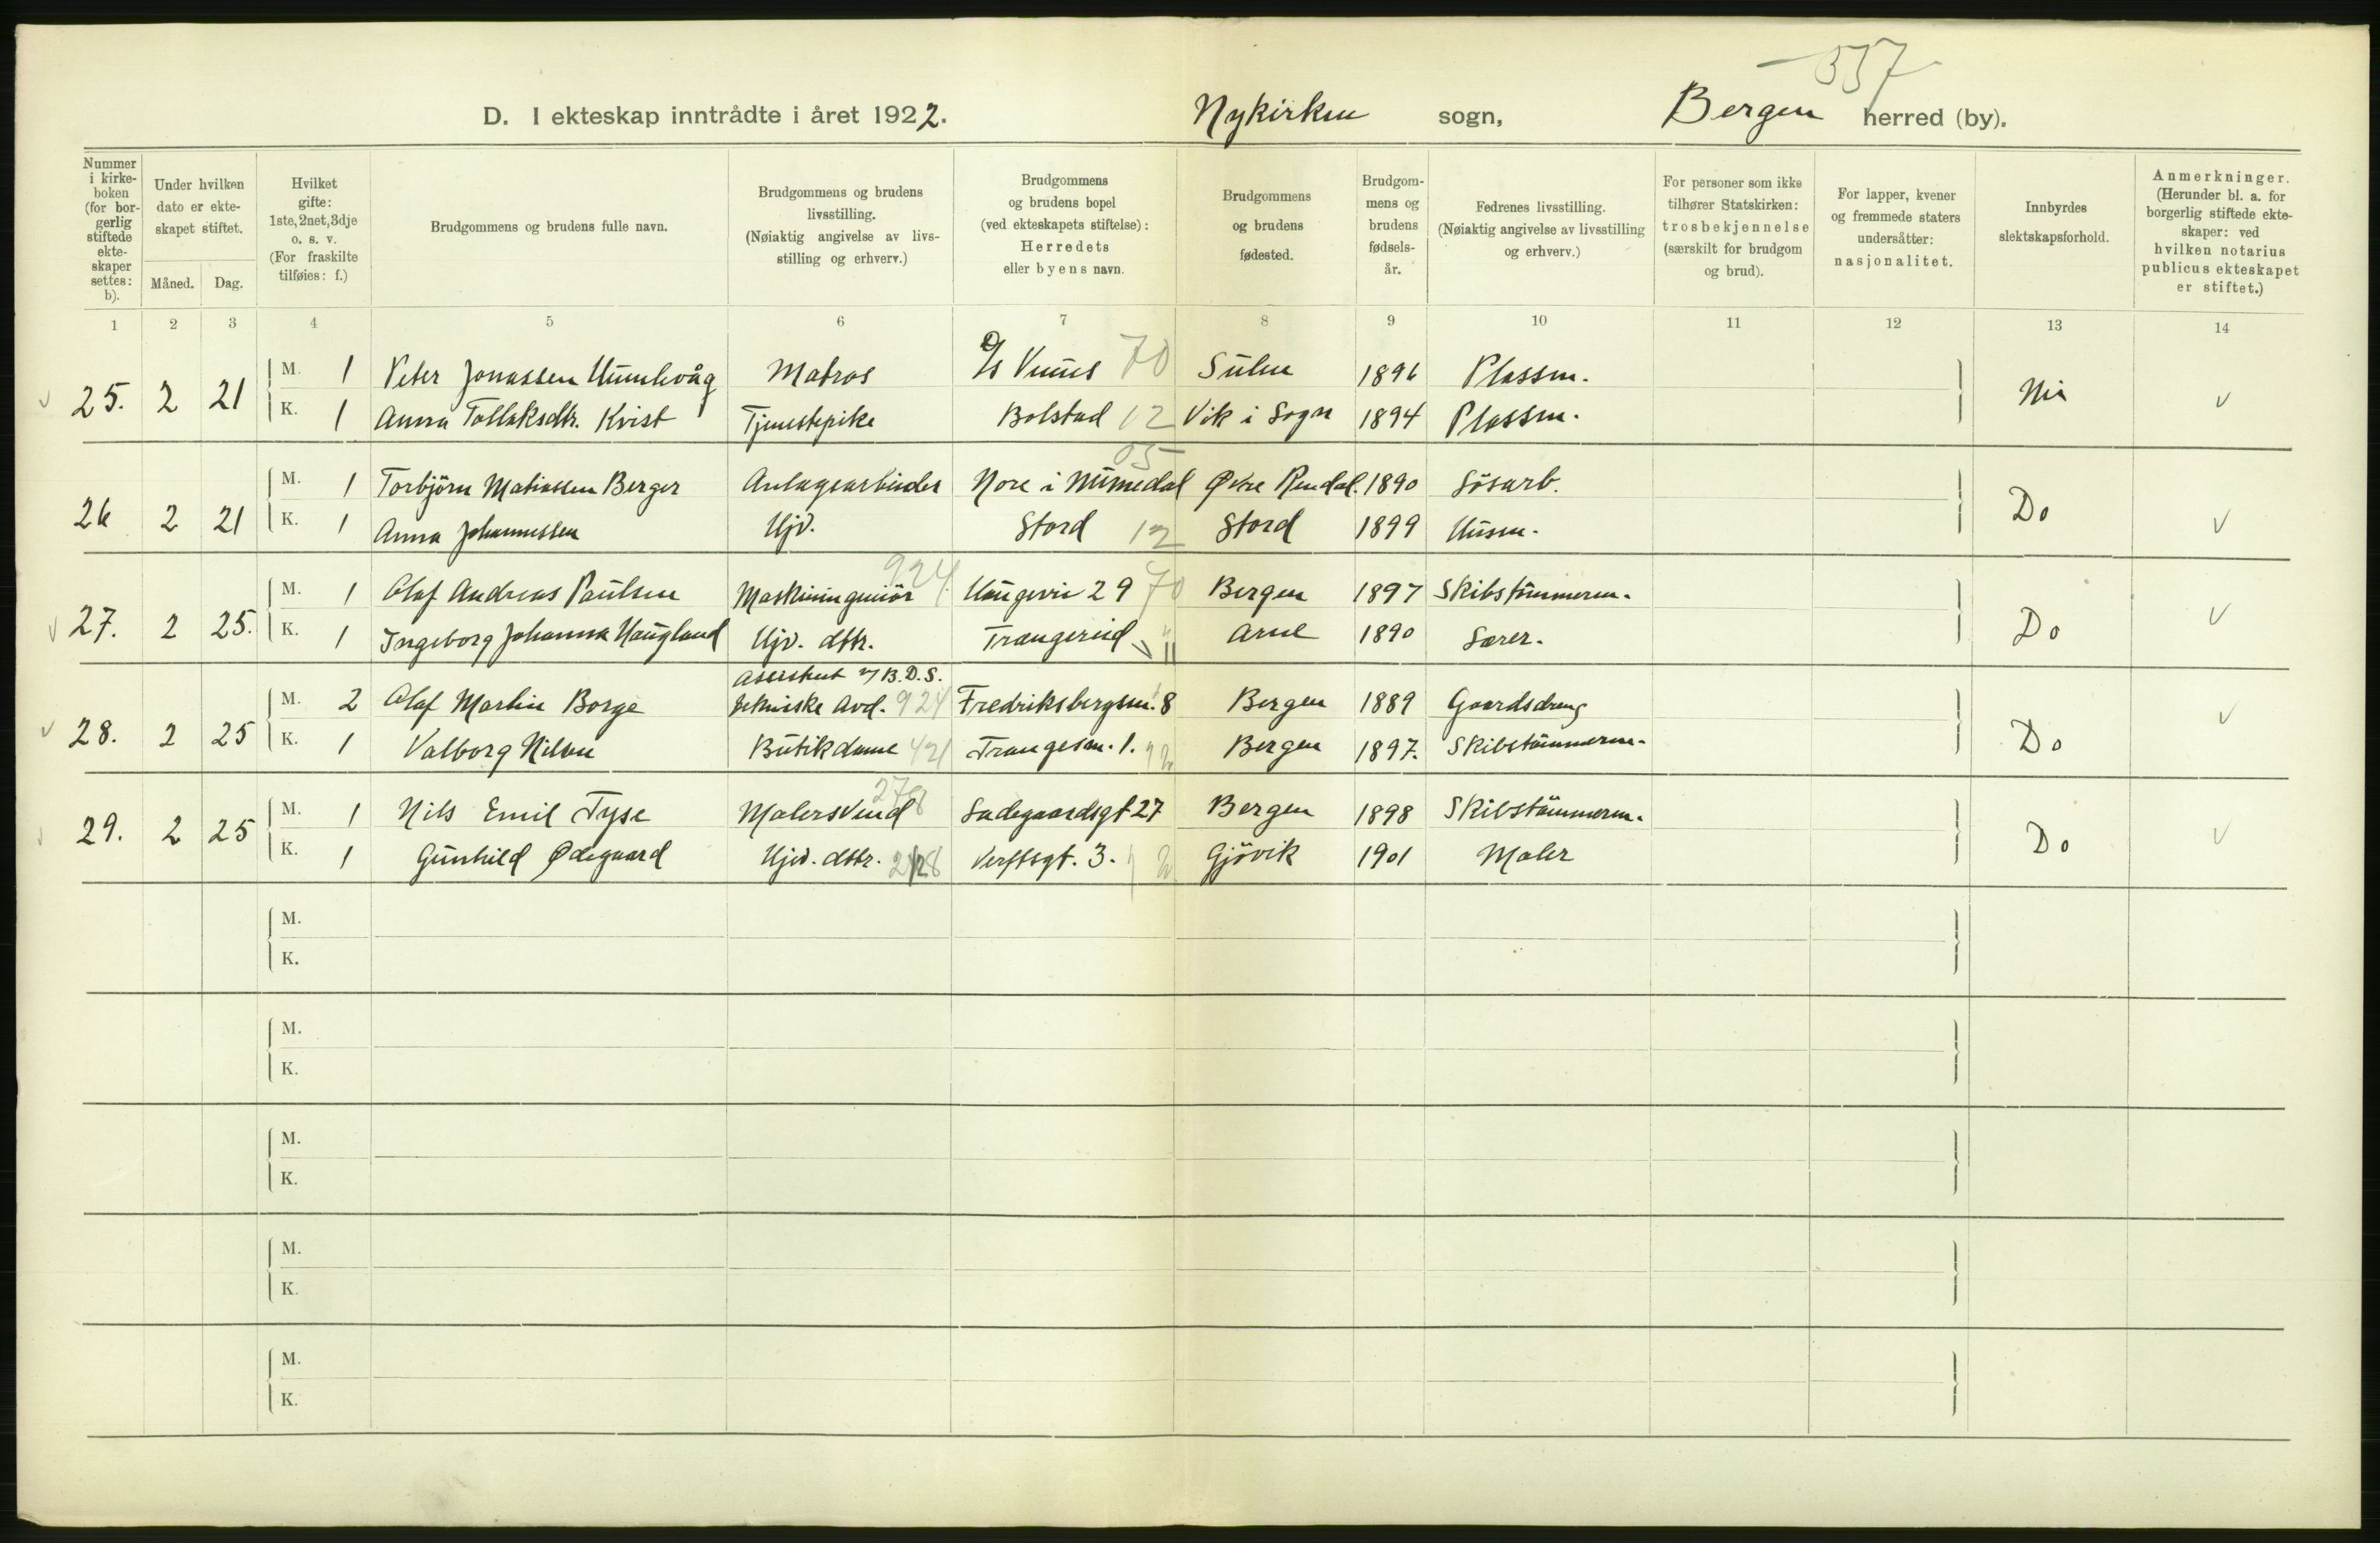 337
D. I ekteskap inntrådte i året 1922. Nykirken sogn, Bergen herred (by).
Nummer i kirkeboken (for borgerlig stiftede ekteskaper settes: b).
Under hvilken dato er ekteskapet stiftet.
Måned. Dag.
Hvilket gifte: 1ste, 2net, 3dje o. s. v. (For fraskilte tilføies: f.)
Brudgommens og brudens fulle navn.
Brudgommens og brudens livsstilling. (Nøiaktig angivelse av livsstilling og erhverv.)
Brudgommens og brudens bopel (ved ekteskapets stiftelse): Herredets eller byens navn.
Brudgommens og brudens fødested.
Brudgommens og brudens fødselsår.
Fedrenes livsstilling. (Nøiaktig angivelse av livsstilling og erhverv.)
For personer som ikke tilhører Statskirken: trosbekjennelse (særskilt for brudgom og brud).
For lapper, kvener og fremmede staters undersåtter: nasjonalitet.
Innbyrdes slektskapsforhold.
Anmerkninger. (Herunder bl. a. for borgerlig stiftede ekteskaper: ved hvilken notarius publicus ekteskapet er stiftet.)
1 2 3 4 5 6 7 8 9 10 11 12 13 14
25. 2 21 M. 1 Peter Jonassen Matros D/s Venus 70 Sulen 1896 Plassm. Nei
K. 1 Anna Tollaksdtr. Kvist Tjenestepike Bolstad 12 Vik i Sogn 1894 Plassm. v
05
26 2 21 M. 1 Torbjörn Matiassen Berger Anlagsarbeider Nore i Numedal Øvre Rendal. 1890 Løsarb. Do
K. 1 Anna Johannessen Hjv. Stord 12 Stord 1899 Husm. v
924
27. 2 25. M. 1 Olaf Andreas Paulsen Maskiningeniör Haugevei 29 70 Bergen 1897 Skibstömmerm. Do v
K. 1 Ingeborg Johanna Haugland Hjv. dttr. Trangereid Arne 1890 Lærer.
Assistent v/ B.D.S.
28. 2 25 M. 2 Olaf Martin Borge tekniske Avd. 924 Fredriksbergsm. 8 Bergen 1889 Gaardsdreng Do v
K. 1 Valborg Nilsen Butikdame 421 Trangesm. 1. Bergen 1897. Skibstömmerm.
278
29. 2 25 M. 1 Nils Emil Tyse Malersvend Ladegaardsgt 27 Bergen 1898 Skibstömmerm. Do v
K. 1 Gunhild Ødegaard Hjv. dttr. Verftsgt. 3. Gjövik 1901 Maler
M.
K.
M.
K.
M.
K.
M.
K.
M.
K.